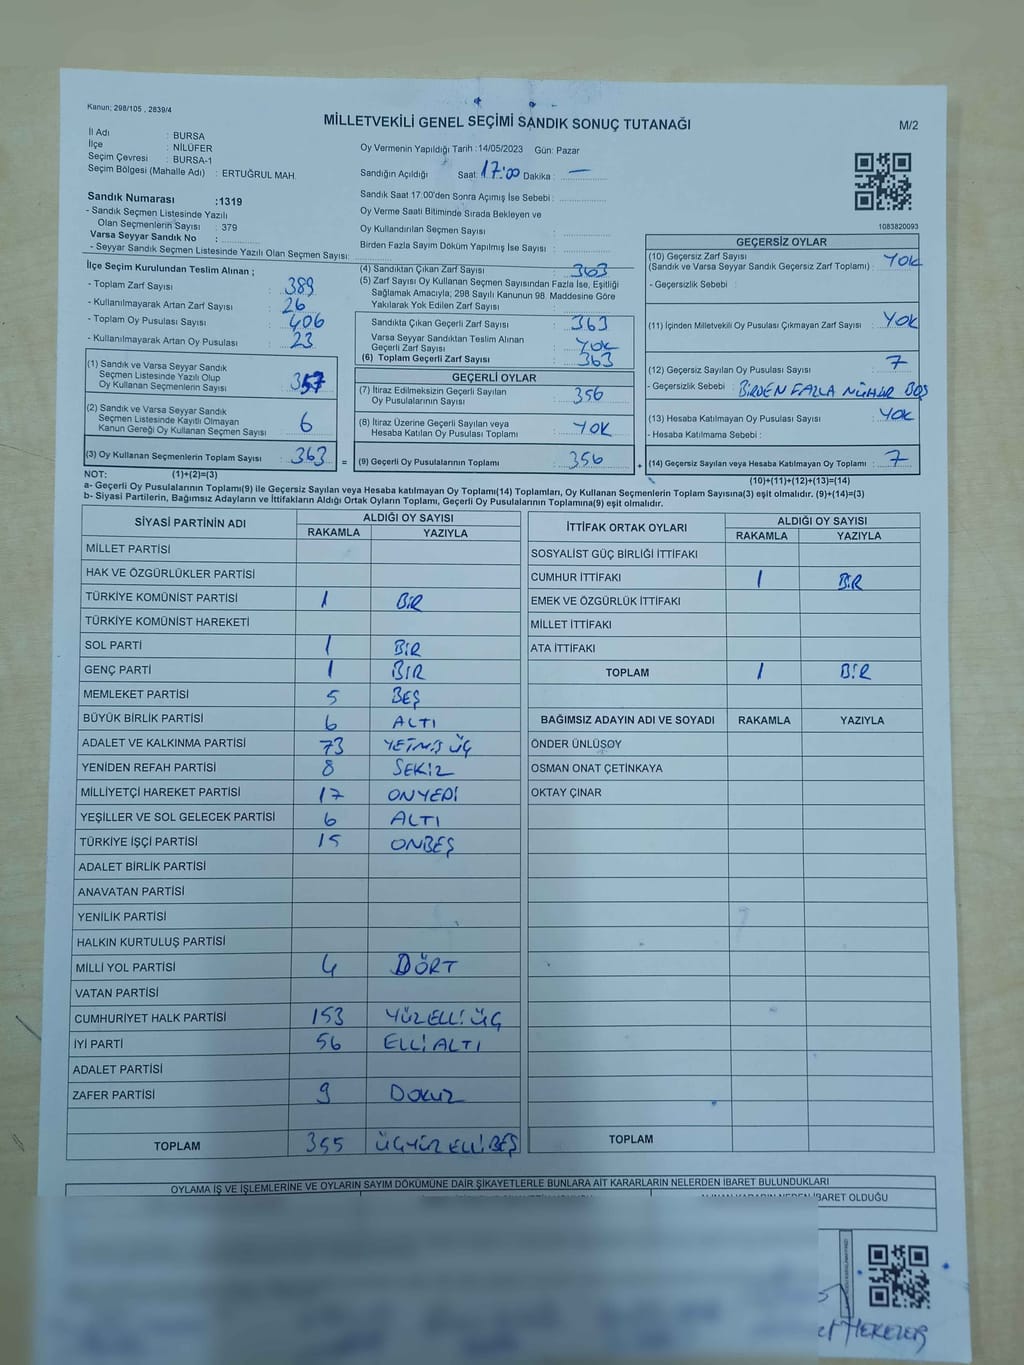 Kanun; 298/105 , 2839/4
MİLLETVEKİLİ GENEL SEÇİMİ SANDIK SONUÇ TUTANAĞI
M/2
İl Adı : BURSA
İlçe : NİLÜFER
Seçim Çevresi : BURSA-1
Seçim Bölgesi (Mahalle Adı) : ERTUĞRUL MAH.
Oy Vermenin Yapıldığı Tarih :14/05/2023 Gün: Pazar
Sandığın Açıldığı Saat: 17:00 Dakika : —
Sandık Saat 17.00'den Sonra Açımış İse Sebebi :
Oy Verme Saati Bitiminde Sırada Bekleyen ve
Oy Kullandırılan Seçmen Sayısı :
Birden Fazla Sayım Döküm Yapılmış İse Sayısı :
Sandık Numarası :1319
- Sandık Seçmen Listesinde Yazılı
Olan Seçmenlerin Sayısı : 379
Varsa Seyyar Sandık No :
- Seyyar Sandık Seçmen Listesinde Yazılı Olan Seçmen Sayısı:
1083820093
İlçe Seçim Kurulundan Teslim Alınan ;
- Toplam Zarf Sayısı : 389
- Kullanılmayarak Artan Zarf Sayısı : 26
- Toplam Oy Pusulası Sayısı : 406
- Kullanılmayarak Artan Oy Pusulası : 23
(1) Sandık ve Varsa Seyyar Sandık
Seçmen Listesinde Yazılı Olup
Oy Kullanan Seçmenlerin Sayısı : 357
(2) Sandık ve Varsa Seyyar Sandık
Seçmen Listesinde Kayıtlı Olmayan
Kanun Gereği Oy Kullanan Seçmen Sayısı : 6
(3) Oy Kullanan Seçmenlerin Toplam Sayısı : 363 =
(4) Sandıktan Çıkan Zarf Sayısı : 363
(5) Zarf Sayısı Oy Kullanan Seçmen Sayısından Fazla İse, Eşitliği
Sağlamak Amacıyla; 298 Sayılı Kanunun 98. Maddesine Göre
Yakılarak Yok Edilen Zarf Sayısı :
Sandıkta Çıkan Geçerli Zarf Sayısı : 363
Varsa Seyyar Sandıktan Teslim Alınan
Geçerli Zarf Sayısı : YOK
(6) Toplam Geçerli Zarf Sayısı : 363
GEÇERLİ OYLAR
(7) İtiraz Edilmeksizin Geçerli Sayılan
Oy Pusulalarının Sayısı : 356
(8) İtiraz Üzerine Geçerli Sayılan veya
Hesaba Katılan Oy Pusulası Toplamı : YOK
(9) Geçerli Oy Pusulalarının Toplamı : 356 +
GEÇERSİZ OYLAR
(10) Geçersiz Zarf Sayısı
(Sandık ve Varsa Seyyar Sandık Geçersiz Zarf Toplamı) : YOK
- Geçersizlik Sebebi :
(11) İçinden Milletvekili Oy Pusulası Çıkmayan Zarf Sayısı : YOK
(12) Geçersiz Sayılan Oy Pusulası Sayısı : 7
- Geçersizlik Sebebi : BİRDEN FAZLA MÜHÜR BOŞ
(13) Hesaba Katılmayan Oy Pusulası Sayısı : YOK
- Hesaba Katılmama Sebebi :
(14) Geçersiz Sayılan veya Hesaba Katılmayan Oy Toplamı : 7
NOT: (1)+(2)=(3)
(10)+(11)+(12)+(13)=(14)
a- Geçerli Oy Pusulalarının Toplamı(9) ile Geçersiz Sayılan veya Hesaba katılmayan Oy Toplamı(14) Toplamları, Oy Kullanan Seçmenlerin Toplam Sayısına(3) eşit olmalıdır. (9)+(14)=(3)
b- Siyasi Partilerin, Bağımsız Adayların ve İttifakların Aldığı Ortak Oyların Toplamı, Geçerli Oy Pusulalarının Toplamına(9) eşit olmalıdır.
SİYASİ PARTİNİN ADI
ALDIĞI OY SAYISI
RAKAMLA YAZIYLA
MİLLET PARTİSİ
HAK VE ÖZGÜRLÜKLER PARTİSİ
TÜRKİYE KOMÜNİST PARTİSİ 1 BİR
TÜRKİYE KOMÜNİST HAREKETİ
SOL PARTİ 1 BİR
GENÇ PARTİ 1 BIR
MEMLEKET PARTİSİ 5 BEŞ
BÜYÜK BİRLİK PARTİSİ 6 ALTI
ADALET VE KALKINMA PARTİSİ 73 YETMİŞ ÜÇ
YENİDEN REFAH PARTİSİ 8 SEKİZ
MİLLİYETÇİ HAREKET PARTİSİ 17 ONYEDİ
YEŞİLLER VE SOL GELECEK PARTİSİ 6 ALTI
TÜRKİYE İŞÇİ PARTİSİ 15 ONBEŞ
ADALET BİRLİK PARTİSİ
ANAVATAN PARTİSİ
YENİLİK PARTİSİ
HALKIN KURTULUŞ PARTİSİ
MİLLİ YOL PARTİSİ 4 DÖRT
VATAN PARTİSİ
CUMHURİYET HALK PARTİSİ 153 YÜZELLİ ÜÇ
İYİ PARTİ 56 ELLİ ALTI
ADALET PARTİSİ
ZAFER PARTİSİ 9 DOKUZ
TOPLAM 355 ÜÇYÜZELLİBEŞ
İTTİFAK ORTAK OYLARI
ALDIĞI OY SAYISI
RAKAMLA YAZIYLA
SOSYALİST GÜÇ BİRLİĞİ İTTİFAKI
CUMHUR İTTİFAKI 1 BİR
EMEK VE ÖZGÜRLÜK İTTİFAKI
MİLLET İTTİFAKI
ATA İTTİFAKI
TOPLAM 1 BİR
BAĞIMSIZ ADAYIN ADI VE SOYADI RAKAMLA YAZIYLA
ÖNDER ÜNLÜSOY
OSMAN ONAT ÇETİNKAYA
OKTAY ÇINAR
TOPLAM
OYLAMA İŞ VE İŞLEMLERİNE VE OYLARIN SAYIM DÖKÜMÜNE DAİR ŞİKAYETLERLE BUNLARA AİT KARARLARIN NELERDEN İBARET BULUNDUKLARI
İBARET OLDUĞU